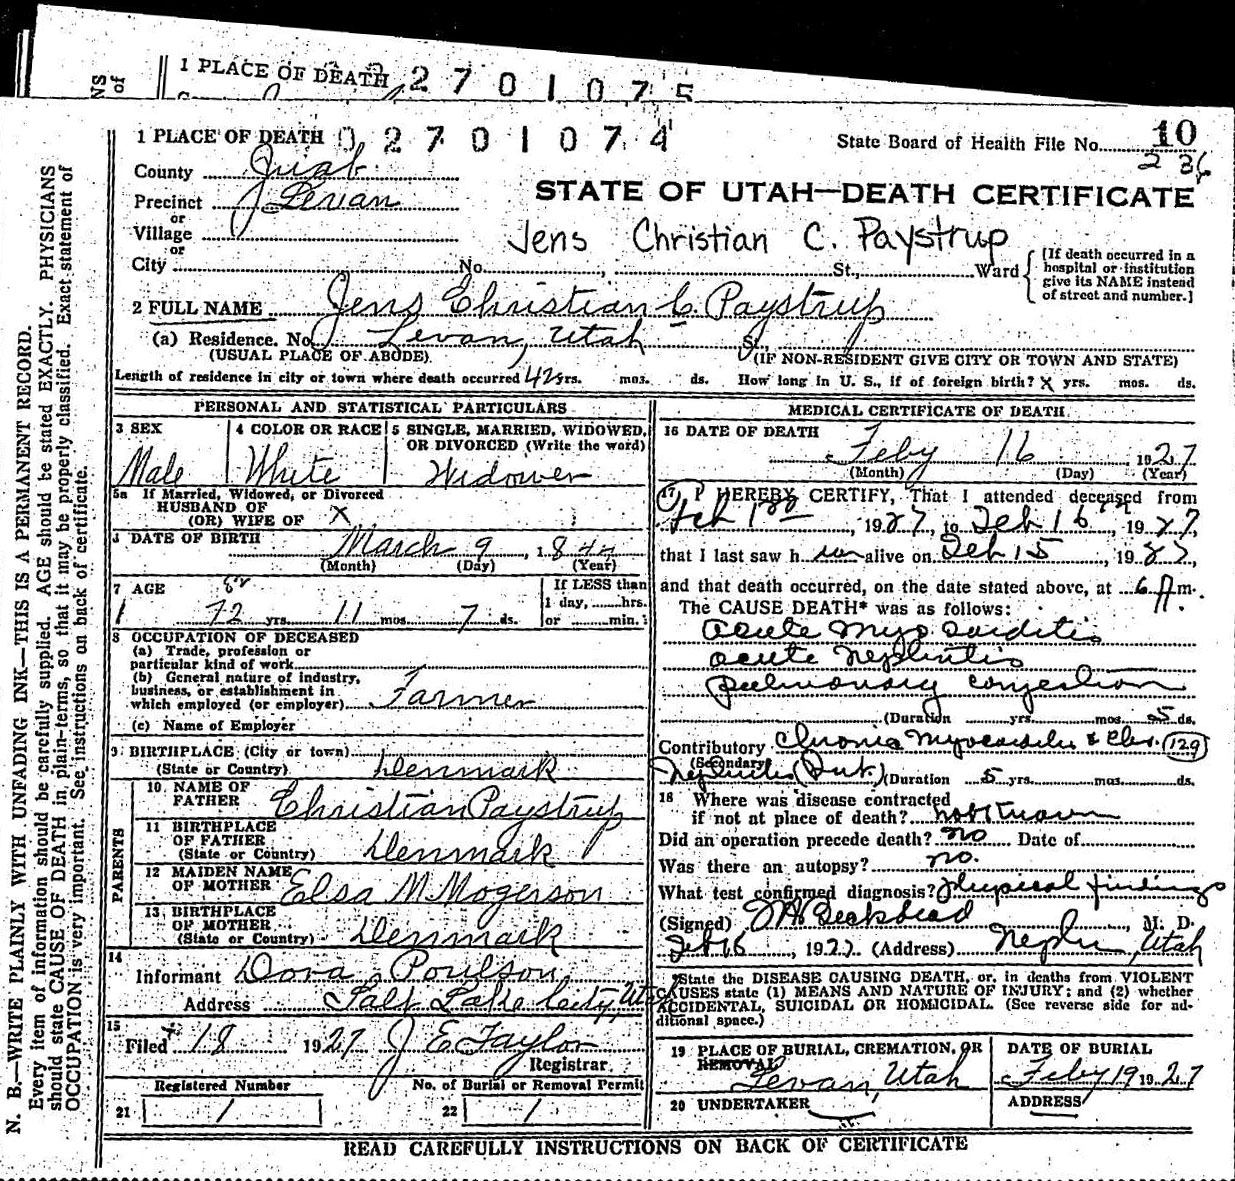 1 PLACE OF DEATH 2 7 0 1 0 7 5
1 PLACE OF DEATH 0 2 7 0 1 0 7 4
State Board of Health File No. 10
2 36
County Juab
Precinct Levan
or
Village
or
City No. , St., Ward
STATE OF UTAH—DEATH CERTIFICATE
Jens Christian C. Paystrup
[If death occurred in a hospital or institution give its NAME instead of street and number.]
2 FULL NAME Jens Christian C. Paystrup
(a) Residence. No. Levan, Utah St.,
(USUAL PLACE OF ABODE) (IF NON-RESIDENT GIVE CITY OR TOWN AND STATE)
Length of residence in city or town where death occurred 42 yrs. mos. ds. How long in U. S., if of foreign birth? x yrs. mos. ds.
PERSONAL AND STATISTICAL PARTICULARS
3 SEX
Male
4 COLOR OR RACE
White
5 SINGLE, MARRIED, WIDOWED,
OR DIVORCED (Write the word)
Widower
5a If Married, Widowed, or Divorced
HUSBAND OF
(OR) WIFE OF X
6 DATE OF BIRTH
March 9, 1844
(Month) (Day) (Year)
7 AGE
82
72 yrs. 11 mos. 7 ds.
If LESS than
1 day, hrs.
or min.
8 OCCUPATION OF DECEASED
(a) Trade, profession or
particular kind of work
(b) General nature of industry,
business, or establishment in
which employed (or employer) Farmer
(c) Name of Employer
9 BIRTHPLACE (City or town)
(State or Country) Denmark
PARENTS
10 NAME OF
FATHER Christian Paystrup
11 BIRTHPLACE
OF FATHER
(State or Country) Denmark
12 MAIDEN NAME
OF MOTHER Elsa M. Mogerson
13 BIRTHPLACE
OF MOTHER
(State or Country) Denmark
14
Informant Dora Poulson
Address Salt Lake City, Utah
15
Filed 18 1927 J E Taylor
Registrar
Registered Number No. of Burial or Removal Permit
21 1 22 1
MEDICAL CERTIFICATE OF DEATH
16 DATE OF DEATH
Feby 16 1927
(Month) (Day) (Year)
17 I HEREBY CERTIFY, That I attended deceased from
Feb 1st, 1927, to Feb 16th, 1927,
that I last saw him alive on Feb 15, 1927,
and that death occurred, on the date stated above, at 6 A m.
The CAUSE DEATH* was as follows:
acute myocarditis
acute nephritis
pulmonary congestion
(Duration yrs. mos. 25 ds.
Contributory Chronic myocarditis & Chr. 129
(Secondary)
Nephritis (Int.) (Duration 5 yrs. mos. ds.
18 Where was disease contracted
if not at place of death? not known
Did an operation precede death? no Date of
Was there an autopsy? no.
What test confirmed diagnosis? physical findings
(Signed) Beckstead, M. D.
Feb 16, 1927. (Address) Nephi, Utah
*State the DISEASE CAUSING DEATH, or, in deaths from VIOLENT
CAUSES state (1) MEANS AND NATURE OF INJURY; and (2) whether
ACCIDENTAL, SUICIDAL OR HOMICIDAL. (See reverse side for ad-
ditional space.)
19 PLACE OF BURIAL, CREMATION, OR
REMOVAL
Levan, Utah
DATE OF BURIAL
Feby 19 1927
20 UNDERTAKER
ADDRESS
READ CAREFULLY INSTRUCTIONS ON BACK OF CERTIFICATE
N. B.—WRITE PLAINLY WITH UNFADING INK—THIS IS A PERMANENT RECORD.
Every item of information should be carefully supplied. AGE should be stated EXACTLY. PHYSICIANS
should state CAUSE OF DEATH in plain terms, so that it may be properly classified. Exact statement of
OCCUPATION is very important. See instructions on back of certificate.